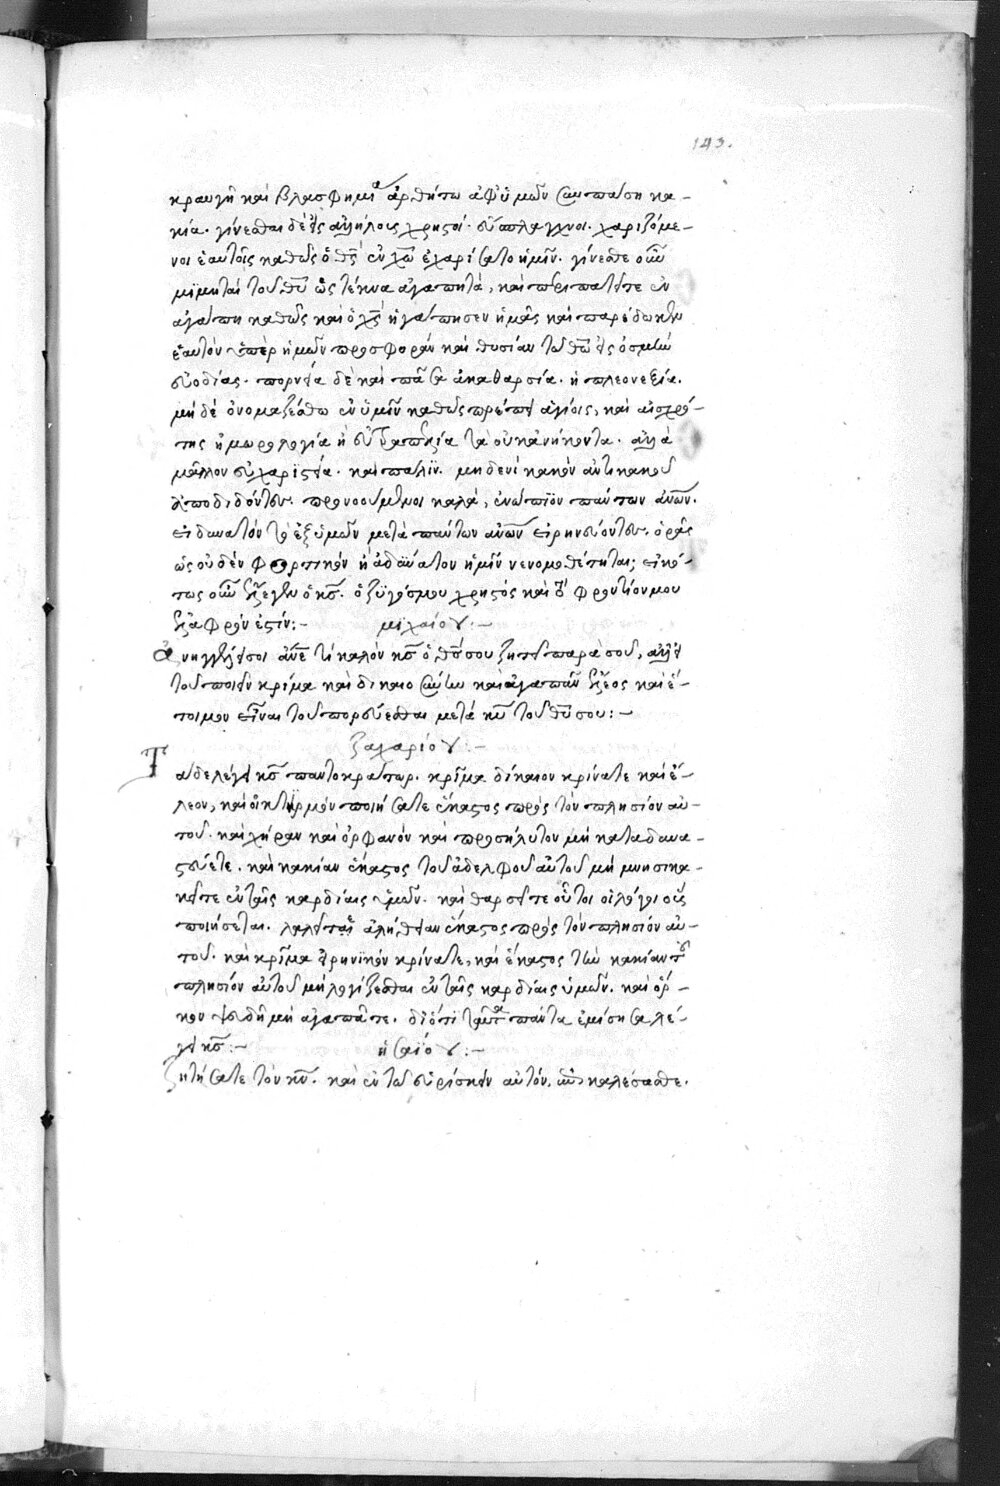 143.
κραυγὴ καὶ βλασφημία ἀρθήτω ἀφ' ὑμῶν σὺν πάσῃ κα-
κία. γίνεσθαι δὲ εἰς ἀλλήλους χρηστοί. εὔσπλαγχνοι. χαριζόμε-
νοι ἑαυτοῖς καθὼς ὁ θς ἐν χω ἐχαρίσατο ἡμῖν. γίνεσθε οὖν
μϊμηταί τοῦ θυ ὡς τέκνα ἀγαπητά, καὶ περιπατεῖτε ἐν
ἀγάπη καθὼς καὶ ὁ χς ἠγάπησεν ἡμᾶς καὶ παρέδωκεν
ἑαυτὸν ὑπὲρ ἡμῶν προσφορὰν καὶ θυσίαν τῶ θω εἰς ὀσμὴν
εὐωδίας. πορνεία δὲ καὶ πᾶσα ἀκαθαρσία. ἢ πλεονεξία.
μὴ δὲ ὀνομαζέσθω ἐν ὑμῖν καθὼς πρέπει ἁγίοις, καὶ αἰσχρό-
της ἢ μωρολογία ἢ εὐτραπελία τὰ οὐκ ἀνήκοντα. ἀλλὰ
μᾶλλον εὐχαριστία. καὶ πάλϊν. μηδενὶ κακὸν ἀντὶ κακοῦ
ἀποδιδόντες. προνοούμενοι καλὰ, ἐνώπϊον πάντων ἀνων.
εἰ δυνατὸν τὸ ἐξ ὑμῶν μετὰ πάντων ἀνων εἰρηνεύοντες. ὁρᾶς
ὡς οὐδὲν φορτικὸν ἢ ἀδϋνατον ἡμῖν νενομοθέτηται; εἰκό-
τως οὖν ἔλεγεν ὁ κς. ὁ ζϋγός μου χρηστὸς καὶ τὸ φορτίον μου
ἐλαφρόν ἐστίν:-
μϊχαίου:-
ἀνηγγέλη σοι ἄνε τί καλὸν κς ὁ θς σου ζητεῖ παρὰ σοῦ, ἀλλ' ἢ
τοῦ ποιεῖν κρίμα καὶ δικαιοσύνην καὶ ἀγαπᾶν ἔλεος καὶ ἕ-
τοιμον εἶναι τοῦ πορεύεσθαι μετὰ κυ τοῦ θυ σου:-
ζαχαρίου:-
Τάδε λέγει κς παντοκράτωρ. κρῖμα δίκαιον κρίνατε καὶ ἔ-
λεον, καὶ οἰκτιρμὸν ποιήσατε ἕκαστος πρὸς τὸν πλησίον αὐ-
τοῦ. καὶ χήραν καὶ ὀρφανὸν καὶ προσήλυτον μὴ καταδυνα-
στεύετε. καὶ κακίαν ἕκαστος τοῦ ἀδελφοῦ αὐτοῦ μὴ μνησικα-
κεῖτε ἐν ταῖς καρδίαις ὑμῶν. καὶ θαρσεῖτε οὗτοι οἱ λόγοι οὓς
ποιήσεται. λαλεῖται ἀλήθειαν ἕκαστος πρὸς τὸν πλησίον αὐ-
τοῦ. καὶ κρῖμα εἰρηνϊκὸν κρίνατε, καὶ ἕκαστος τὴν κακίαν τοῦ
πλησίον αὐτοῦ μὴ λογίζεσθαι ἐν ταῖς καρδίαις ὑμῶν. καὶ ὅρ-
κον ψευδῆ μὴ ἀγαπᾶτε. διότι ταῦτα πάντα ἐμίσησα λέ-
γει κς:-
ἠσαίου:-
ζητήσατε τὸν κν. καὶ ἐν τῶ εὑρίσκειν αὐτόν, ἐπικαλέσασθε.